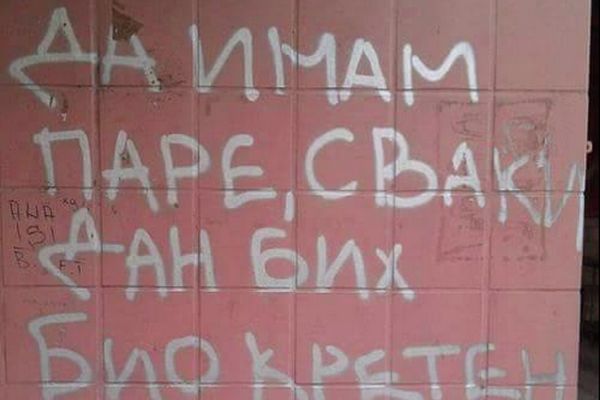 ДА ИМАМ
ПАРЕ, СВАКИ
ДАН БИХ
БИО КРЕТЕН